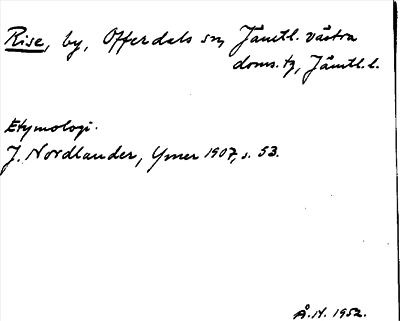 Rise, by, Offerdals sn, Jämtl. västra
doms. tg, Jämtl. l.
Etymologi.
J. Nordlander, Ymer 1907, s. 53.
Å.N. 1952.